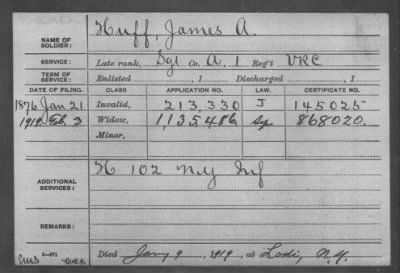 NAME OF SOLDIER: Huff, James A.
SERVICE: Late rank, Sgt Co. A, 1 Reg't VRC
TERM OF SERVICE: Enlisted , 1 Discharged , 1
DATE OF FILING. CLASS APPLICATION NO. LAW. CERTIFICATE NO.
1876 Jan 21 Invalid, 213,330 J 145025
1919 Feb. 3 Widow, 1,135,486 Sp. 868020.
Minor,
ADDITIONAL SERVICES: H 102 N.Y. Inf
REMARKS:
Died Jany 9, 1919, at Lodi, N.Y.